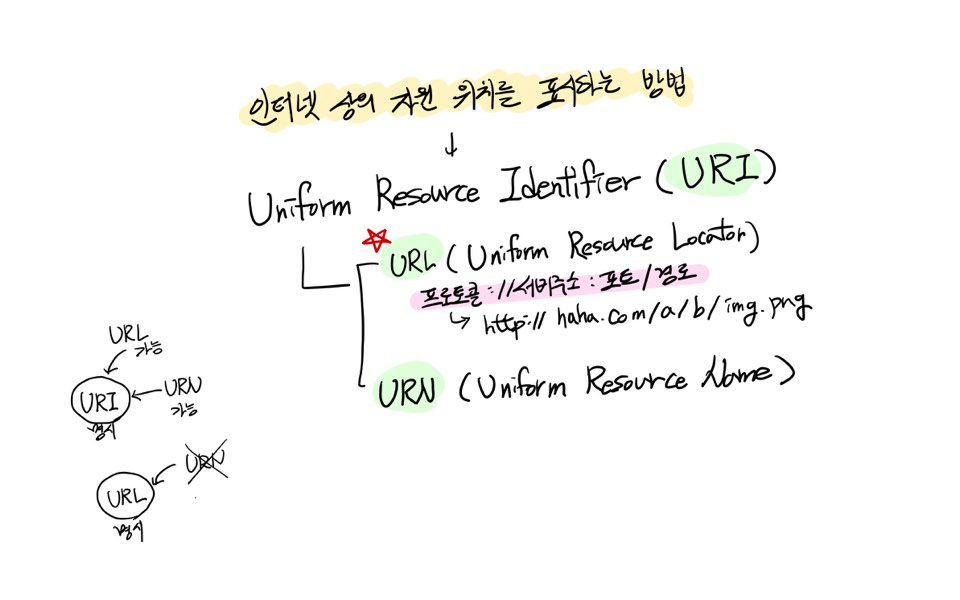 인터넷 상의 자원 위치를 표시하는 방법
Uniform Resource Identifier (URI)
URL (Uniform Resource Locator)
프로토콜://서버주소:포트/경로
http://haha.com/a/b/img.png
URN (Uniform Resource Name)
URL
가능
URI
URN
가능
명시
URN
URL
명시